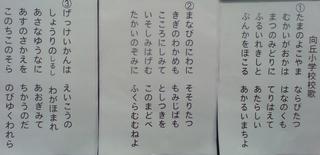 向丘小学校校歌
①たまのよこやま ならびたつ
むかいがおかは はなのくも
まつのみどりに てりはえて
ふるいれきしと あたらしい
ぶんかをほこる あかるいまちよ
②まなびのにわに そそりたつ
きぎのわかめも もみじばも
こころにしみて としつきを
いそしみはげむ このまどべ
たかいのぞみに ふくらむむねよ
③げっけいかんは えいこうの
しょうりのしるし わがほまれ
あさなゆうなに あおぎみて
あすのさかえを ちかうのだ
このちこのそら のびゆくわれら